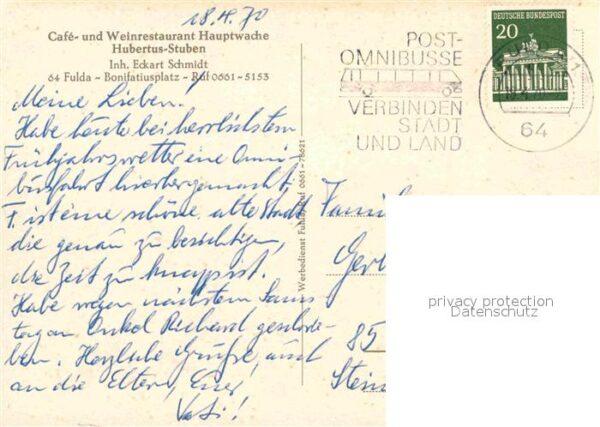 18.4.70
Café- und Weinrestaurant Hauptwache
Hubertus-Stuben
Inh. Eckart Schmidt
64 Fulda – Bonifatiusplatz – Ruf 0661-5153
Meine Lieben!
Habe heute bei herrlichstem
Frühjahrswetter eine Omni-
busfahrt hierher gemacht,
F. ist eine schöne alte Stadt
die genau zu besichtigen,
die Zeit zu knapp ist.
Habe wegen nächstem Sams-
tag an Onkel Richard geschrie-
ben. Herzliche Grüße, auch
an die Eltern, Euer
Vati!
Werbedienst Fulda, Ruf 0661-78621
POST-
OMNIBUSSE
VERBINDEN
STADT
UND LAND
DEUTSCHE BUNDESPOST
20
64
Famili
Ger
85
Stein
privacy protection
Datenschutz